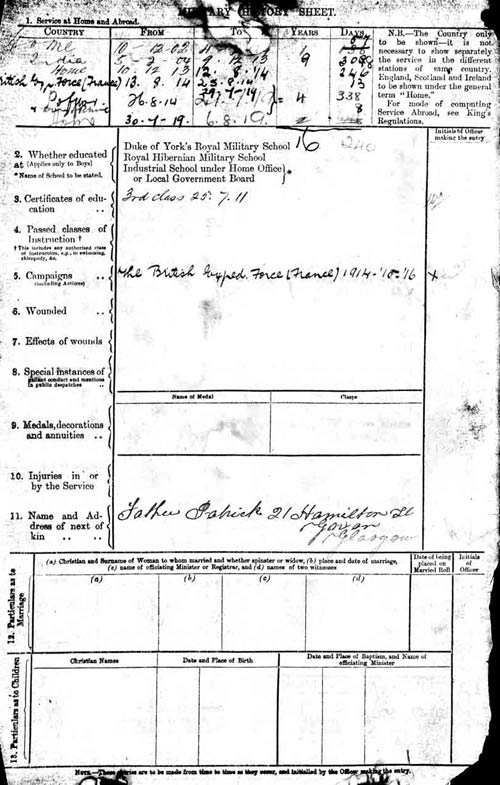 MILITARY HISTORY SHEET.
1. Service at Home and Abroad.
COUNTRY FROM To YEARS DAYS
Home 10 - 12.02
India 5 - 2 04 9. 12. 13 9 308
Home 10 12 13 12. 8. 14 246
British Exp. Force (France) 13. 8. 14 25. 8. 14 13
26.8.14 29.7.19 4 338
Home 30-7-19. 6.8.19. 8
16 240
N.B.—The Country only
to be shown—it is not
necessary to show separately
the service in the different
stations of same country.
England, Scotland and Ireland
to be shown under the general
term "Home."
For mode of computing
Service Abroad, see King's
Regulations.
Initials of Officer
making the entry.
2. Whether educated
at (Applies only to Boys)
* Name of School to be stated.
Duke of York's Royal Military School
Royal Hibernian Military School
Industrial School under Home Office
or Local Government Board
*
3. Certificates of edu-
cation ..
3rd class 25. 7. 11
4. Passed classes of
Instruction †
† This includes any authorised class
of instruction, e.g., in swimming,
chiropody, &c.
5. Campaigns ..
(including Actions)
The British Exped. Force (France) 1914-15-16
6. Wounded ..
7. Effects of wounds
8. Special instances of
gallant conduct and mentions
in public despatches ..
Name of Medal Clasps
9. Medals, decorations
and annuities ..
10. Injuries in or
by the Service
11. Name and Ad-
dress of next of
kin .. ..
Father Patrick 21 Hamilton St
Govan
Glasgow
12. Particulars as to
Marriage
(a) Christian and Surname of Woman to whom married and whether spinster or widow, (b) place and date of marriage,
(c) name of officiating Minister or Registrar, and (d) names of two witnesses
Date of being
placed on
Married Roll
Initials
of
Officer
(a) (b) (c) (d)
13. Particulars as to Children
Christian Names Date and Place of Birth
Date and Place of Baptism, and Name of
officiating Minister
NOTE.—These entries are to be made from time to time as they occur, and initialled by the Officer making the entry.